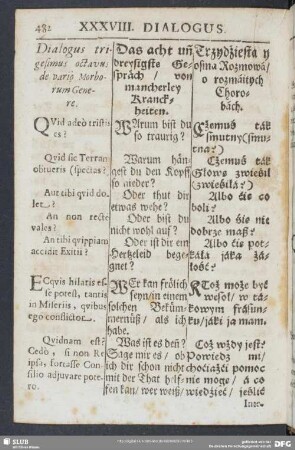 482 XXXVIII. DIALOGUS.
Dialogus tri-
gesimus octavus
de varijs Morbo-
rum Gene-
re.
QVid adeò tristis
es?
Quid sic Terram
obtueris (spectas?)
Aut tibi quid do-
let?
An non rectè
vales?
An tibi quippiam
accidit Exitii?
ECquis hilaris es-
se potest, tantis
in Miseriis, quibus
ego conflictor.
Quidnam est?
Cedò, si non Re
ipsâ, fortasse Con-
silio adjuvare pote-
ro.
Das acht uñ
dreysigste Ge-
spräch / von
mancherley
Kranck-
heiten.
WArum bist du
so traurig?
Warum hän-
gest du den Kopff
so nieder?
Oder thut dir
etwas wehe?
Oder bist du
nicht wohl auf?
Oder ist dir ein
Hertzeleid bege-
gnet?
WEr kan frölich
seyn / in einem
solchen Beküm-
mernüß / als ich
habe.
Was ist es deñ?
Sage mir es / ob
ich dir schon nicht
mit der That helf-
fen kan / wer weiß /
Trzydziesta y
osma Rozmowá /
o rozmáitych
Choro-
bách.
CZemuś ták
smutny (smu-
tna?)
Czemuś ták
Głowę zwiesił
(zwiesiłá?)
Albo ćię co
boli?
Albo śię nie
dobrze maß?
Albo ćię pot-
káłá jáka żá-
łość?
KToż może być
wesoł / w tá-
kowym frásun-
ku / jáki ja mam.
Coż wżdy jest?
Powiedz mi /
choćiażći pomoc
nie mogę / á co
wiedzieć / jeślić